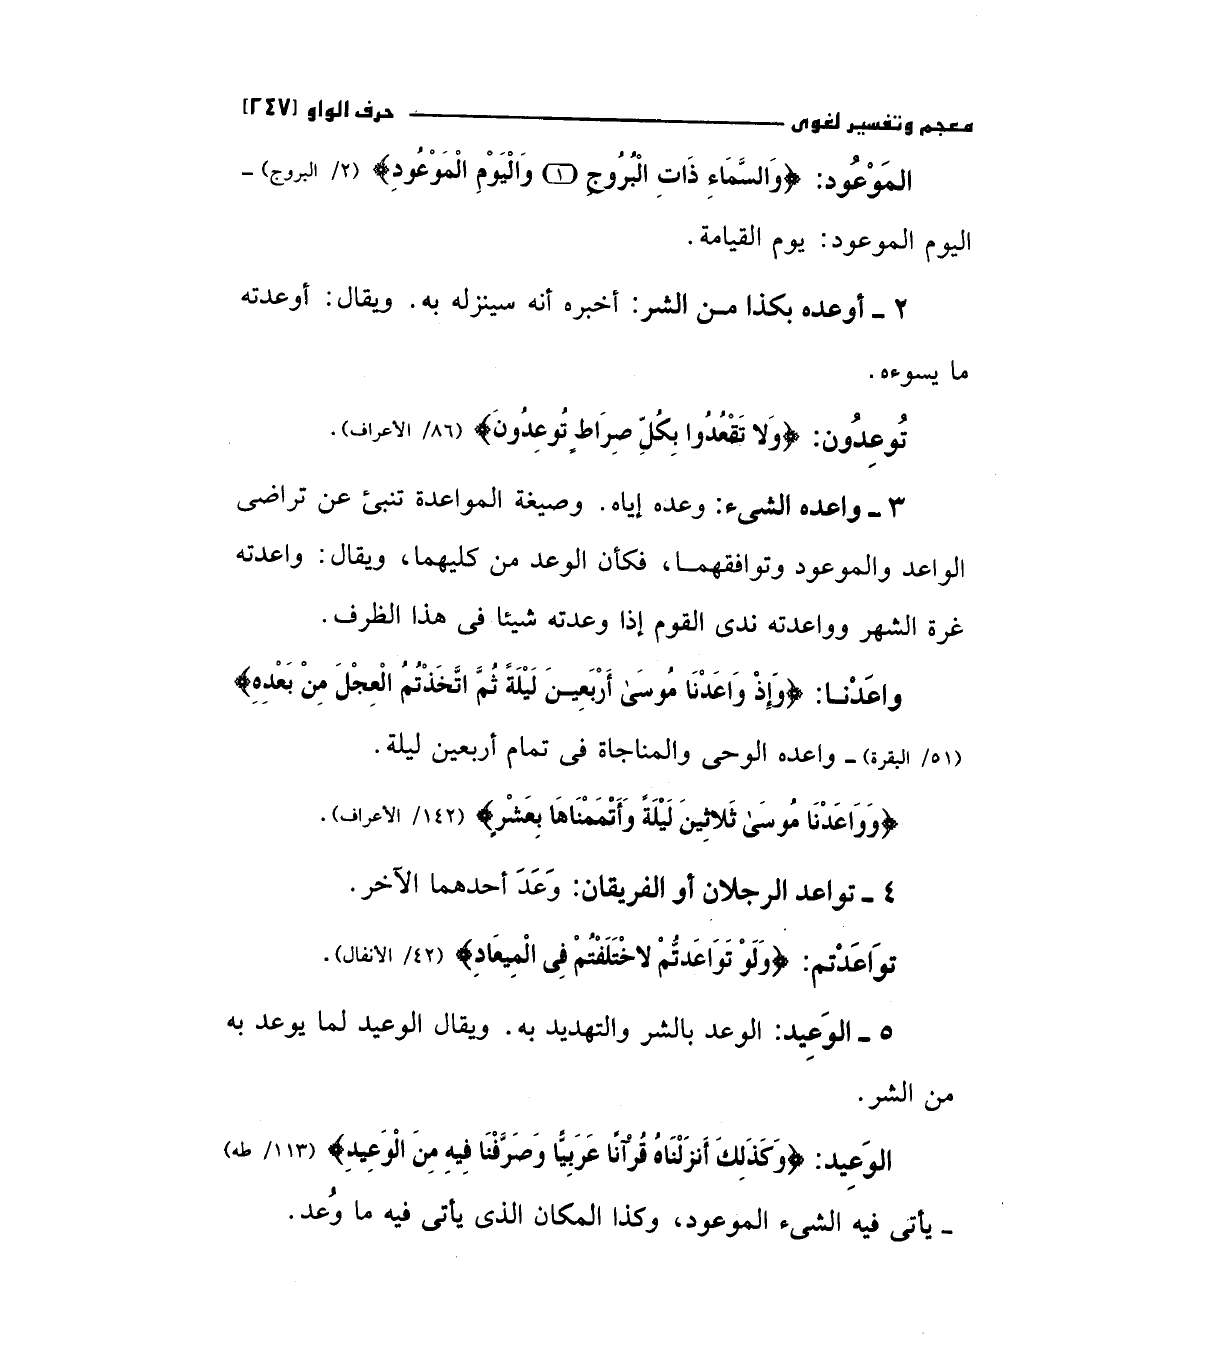 معجم وتفسير لغوى ـــــــــ حرف الواو [٢٤٧]
المَوْعُود: ﴿وَالسَّمَاءِ ذَاتِ الْبُرُوجِ (١) وَالْيَوْمِ الْمَوْعُودِ﴾ (٢/ البروج) ـ
اليوم الموعود: يوم القيامة.
٢ ـ أوعده بكذا مـن الشر: أخبره أنه سينزله به. ويقال: أوعدته
ما يسوءه.
تُوعِدُون: ﴿وَلا تَقْعُدُوا بِكُلِّ صِرَاطٍ تُوعِدُونَ﴾ (٨٦/ الأعراف).
٣ ـ واعده الشىء: وعده إياه. وصيغة المواعدة تنبئ عن تراضى
الواعد والموعود وتوافقهمـا، فكأن الوعد من كليهما، ويقال: واعدته
غرة الشهر وواعدته ندى القوم إذا وعدته شيئا فى هذا الظرف.
واعَدْنـا: ﴿وَإِذْ وَاعَدْنَا مُوسَىٰ أَرْبَعِيـنَ لَيْلَةً ثُمَّ اتَّخَذْتُمُ الْعِجْلَ مِنْ بَعْدِهِ﴾
(٥١/ البقرة) ـ واعده الوحى والمناجاة فى تمام أربعين ليلة.
﴿وَوَاعَدْنَا مُوسَىٰ ثَلاثِينَ لَيْلَةً وَأَتْمَمْنَاهَا بِعَشْرٍ﴾ (١٤٢/ الأعراف).
٤ ـ تواعد الرجلان أو الفريقان: وَعَدَ أحدهما الآخر.
توَاعَدْتم: ﴿وَلَوْ تَوَاعَدتُّمْ لاخْتَلَفْتُمْ فِى الْمِيعَادِ﴾ (٤٢/ الأنفال).
٥ ـ الوَعِيد: الوعد بالشر والتهديد به. ويقال الوعيد لما يوعد به
من الشر.
الوَعِيد: ﴿وَكَذَلِكَ أَنزَلْنَاهُ قُرْآنًا عَرَبِيًّا وَصَرَّفْنَا فِيهِ مِنَ الْوَعِيدِ﴾ (١١٣/ طه)
ـ يأتى فيه الشىء الموعود، وكذا المكان الذى يأتى فيه ما وُعد.